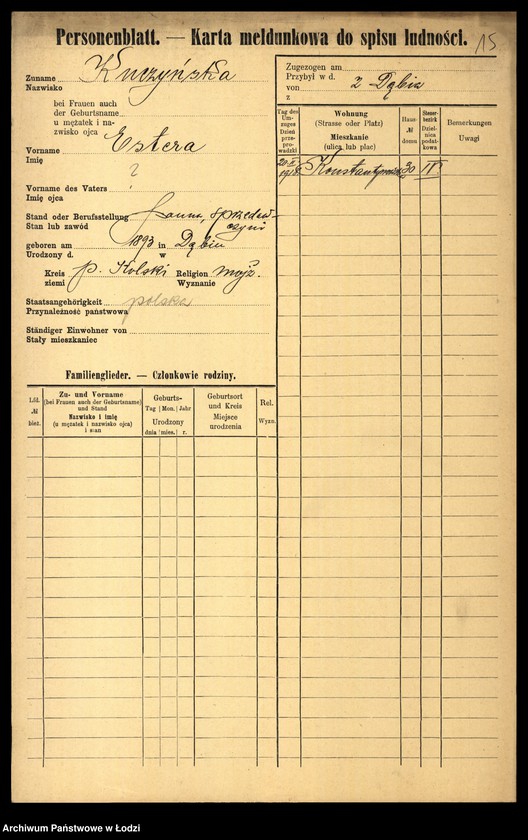 Personenblatt. — Karta meldunkowa do spisu ludności.
15
Zuname Kuczyńska
Nazwisko
bei Frauen auch
der Geburtsname
u mężatek i na-
zwisko ojca
Vorname Estera
Imię
Vorname des Vaters ?
Imię ojca
Stand oder Berufsstellung panna, sprzedaw-
Stan lub zawód czyni
geboren am 1893 in Dąbiu
Urodzony d. w
Kreis p. Kolski Religion mojż.
ziemi Wyznanie
Staatsangehörigkeit polska
Przynależność państwowa
Ständiger Einwohner von
Stały mieszkaniec
Zugezogen am
Przybył w d.
von z Dąbia
z
Tag des Um-zuges Dzień prze-pro-wadzki
Wohnung
(Strasse oder Platz)
Mieszkanie
(ulica lub plac)
Haus-
№
domu
Steuer-bezirk Dziel-nica podat-kowa
Bemerkungen
Uwagi
20 II 1918 30 IV
Familienglieder. — Członkowie rodziny.
Lfd.
№
bież.
Zu- und Vorname
(bei Frauen auch der Geburtsname)
und Stand
Nazwisko i imię
(u mężatek i nazwisko ojca)
i stan
Geburts-
Tag Mon. Jahr
Urodzony
dnia mies. r.
Geburtsort
und Kreis
Miejsce
urodzenia
Rel.
Wyzn.
Archiwum Państwowe w Łodzi